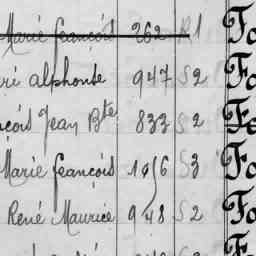 Marie françois 262 R1 Fo
ré alphonse 947 S2 Fo
çois Jean Bte 833 S2 Fo
Marie françois 1056 S3 Fo
René Maurice 948 S2 Fo